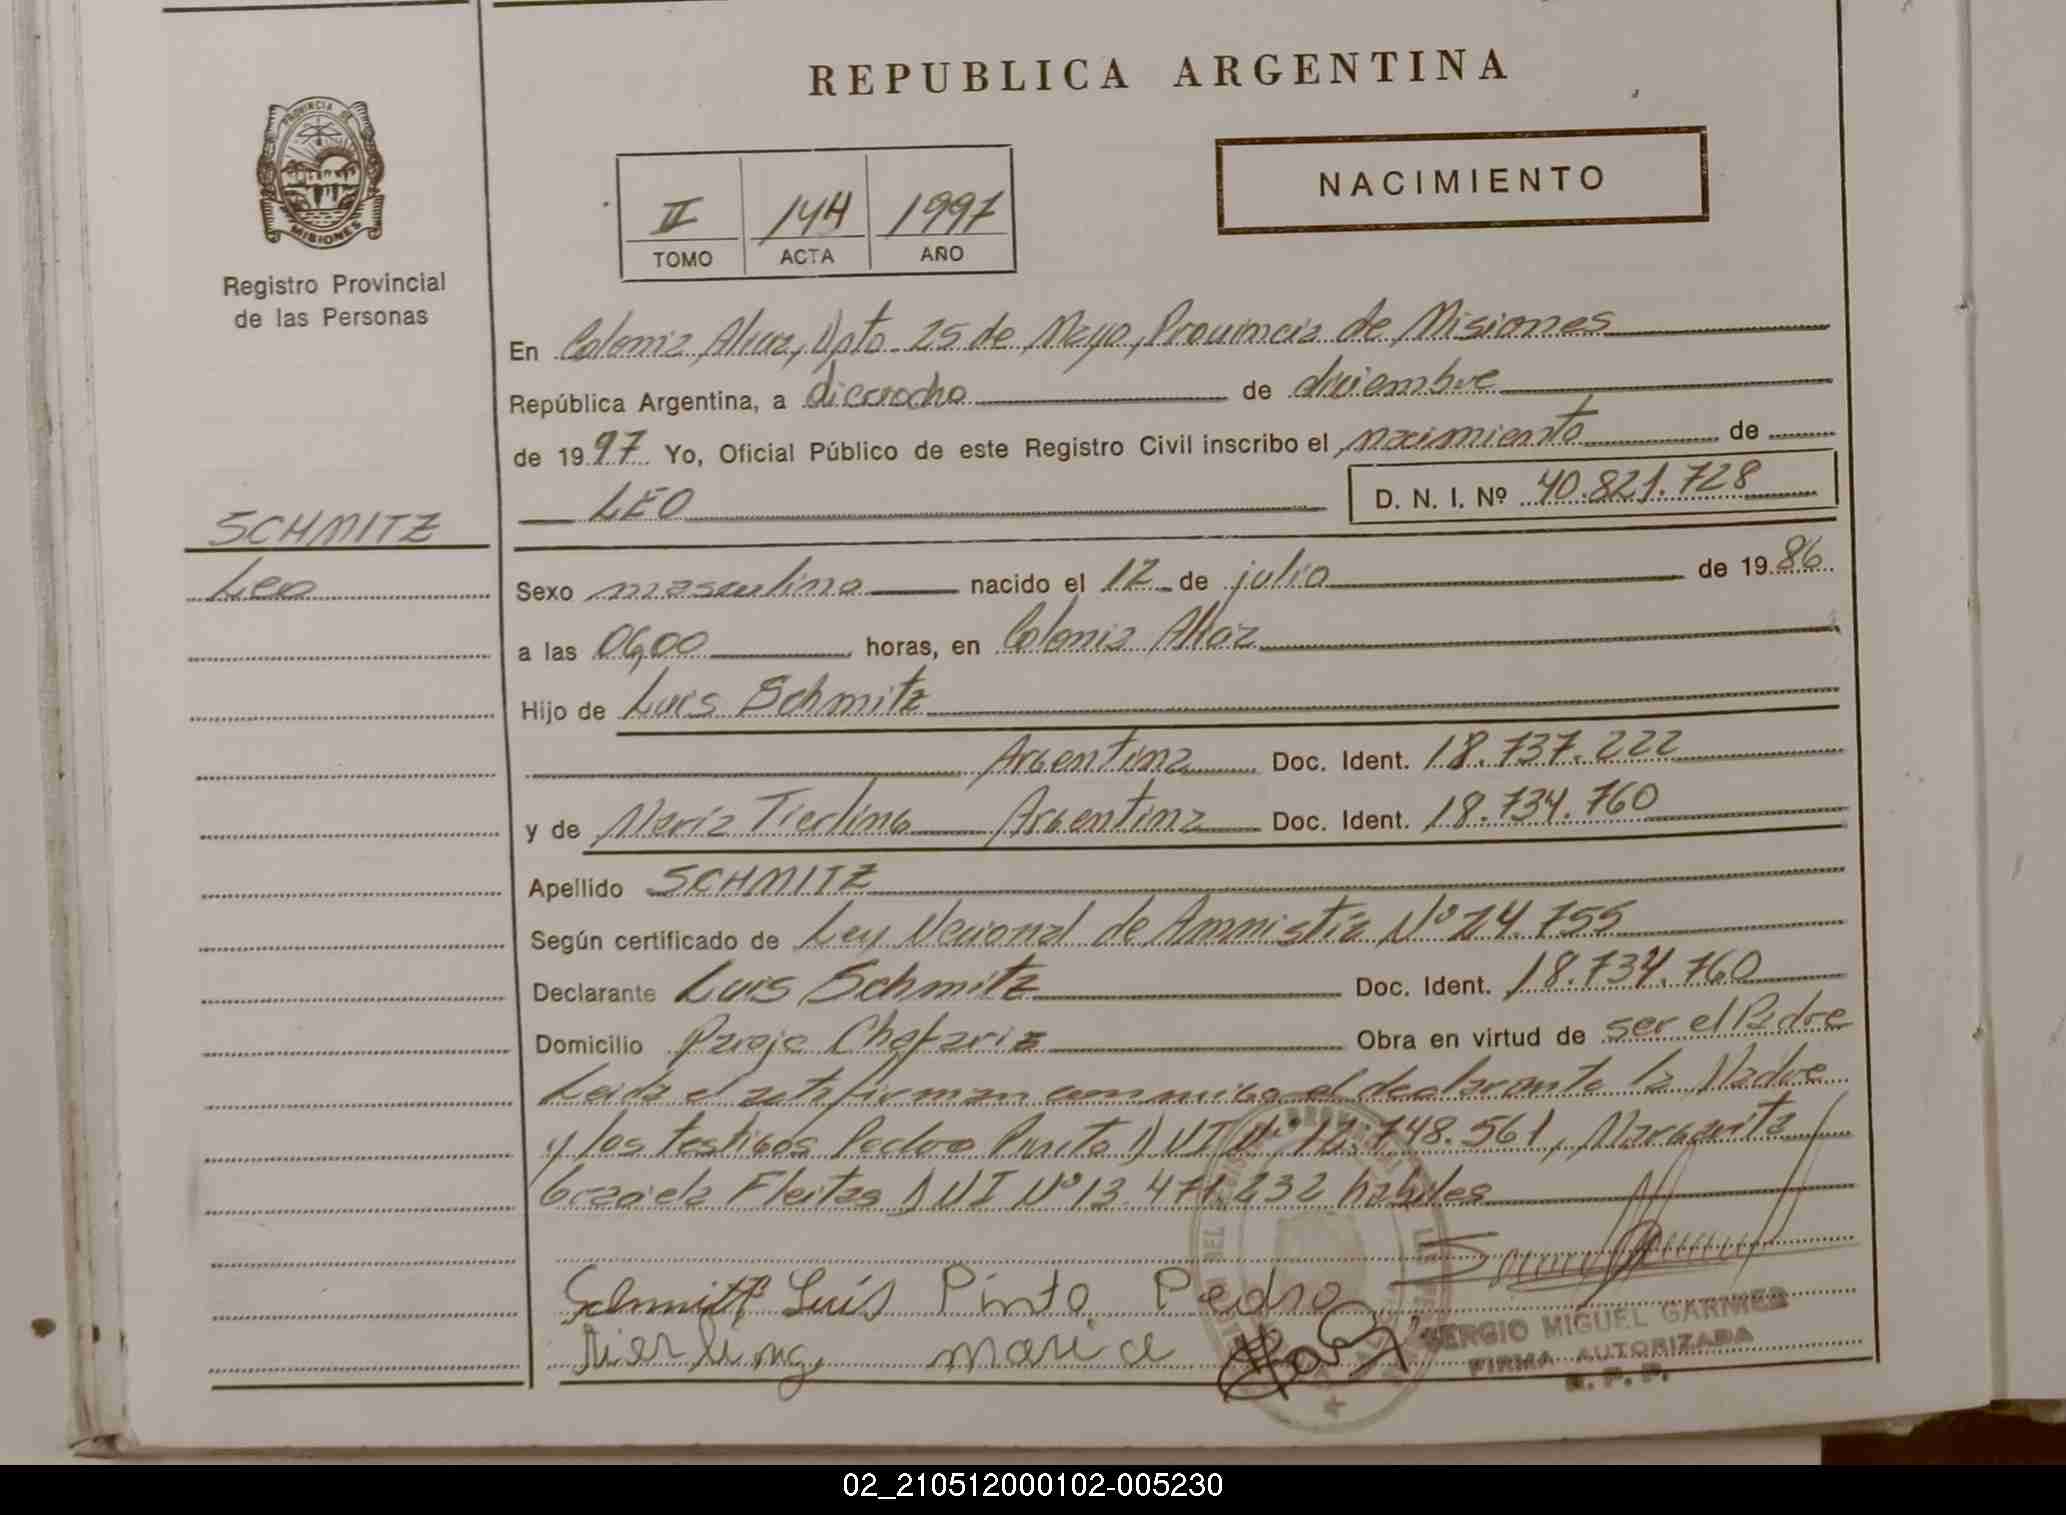 REPUBLICA ARGENTINA
PROVINCIA DE
MISIONES
Registro Provincial
de las Personas
NACIMIENTO
II 144 1997
TOMO ACTA AÑO
En Colonia Alvear, Dpto. 25 de Mayo, Provincia de Misiones
República Argentina, a dieciocho de diciembre
de 1997 Yo, Oficial Público de este Registro Civil inscribo el nacimiento de
LEO D. N. I. Nº 40.821.728
SCHMITZ
Leo
Sexo masculino nacido el 12 de julio de 1986
a las 06,00 horas, en Colonia
Hijo de Luis Schmitz
Argentina Doc. Ident. 18.737.222
y de María Tierling Argentina Doc. Ident. 18.734.760
Apellido SCHMITZ
Según certificado de Ley Nacional de Amnistía Nº 24.755
Declarante Luis Schmitz Doc. Ident. 18.734.760
Domicilio Paraje Chafariz Obra en virtud de ser el Padre
Leida el acta firman conmigo el declarante la Madre
y los testigos Pedro Pinto DNI Nº 12.748.561, Margarita
Graciela Fleitas DNI Nº 13.471.232 habiles
Schmitz Luís Pinto Pedro
Tierling maria
SERGIO MIGUEL GARNIER
FIRMA AUTORIZADA
R. P. P.
02_210512000102-005230